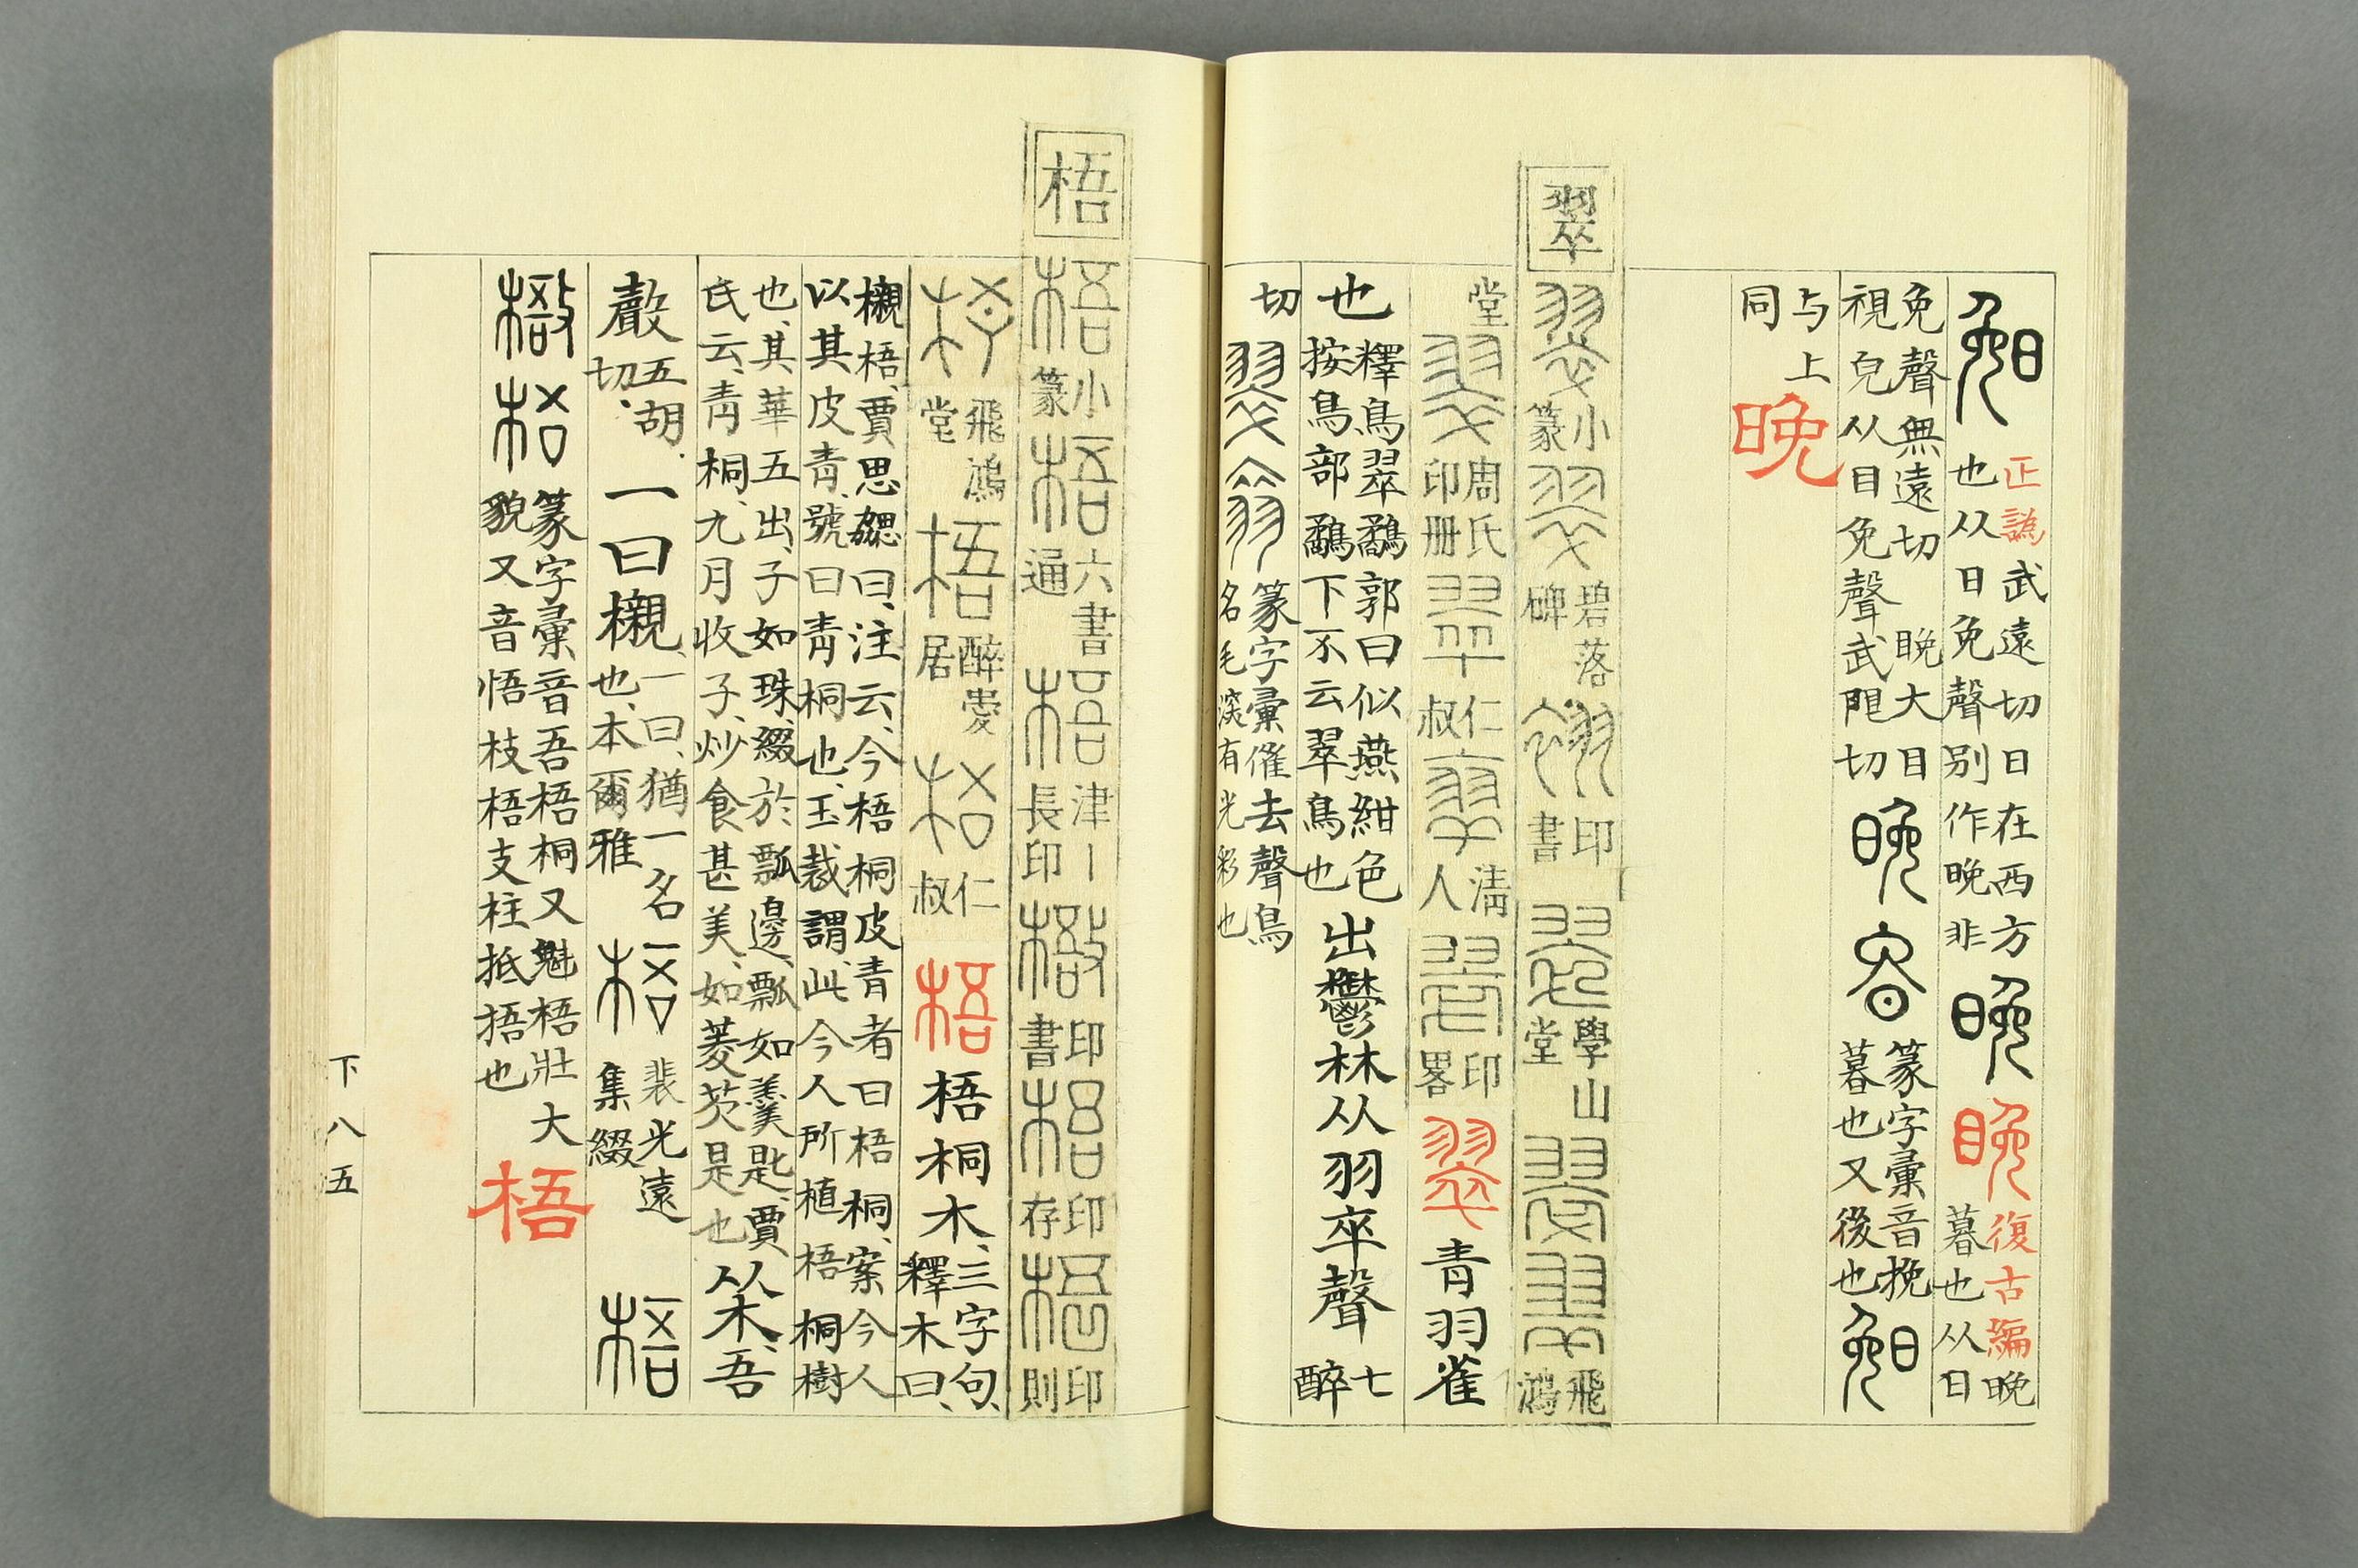 晚
正譌武遠切日在西方
也从日免聲別作晚非
晚
晚
復古編晚
暮也从日
免聲無遠切 晚大目
視皃从目免聲武限切
晚
篆字彙音挽
暮也又後也
晚
与上
同
晚
翠
翠
小篆
翠
碧落碑
翠
印書
翠
學山堂
翠
翠
飛鴻
堂
翠
周氏印冊
翠
仁叔
翠
清人
翠
印畧
翠
青羽雀
也
釋鳥翠鷸郭曰似燕紺色
按鳥部鷸下不云翠鳥也
出鬱林从羽卒聲
七醉
切
翠
篆字彙催去聲鳥
名毛淡有光彩也
梧
梧
小篆
梧
六書通
梧
津丨長印
梧
印書
梧
印存
梧
印則
梧
飛鴻堂
梧
醉愛居
梧
仁叔
梧
梧桐木、
三字句、
釋木曰、
櫬梧、賈思勰曰、注云、今梧桐皮青者曰梧桐、案今人
以其皮青、號曰青桐也、玉裁謂、此今人所植梧桐樹
也、其華五出、子如珠、綴於瓢邊、瓢如羹匙、賈
氏云、青桐、九月收子、炒食甚美、如菱芡是也
从木、吾
聲
五胡
切、
一曰櫬、
一曰、猶一名
也、本爾雅
梧
裴光遠
集綴
梧
梧
梧
篆字彙音吾梧桐又魁梧壯大
貌又音悟枝梧支柱抵捂也
梧
下八五